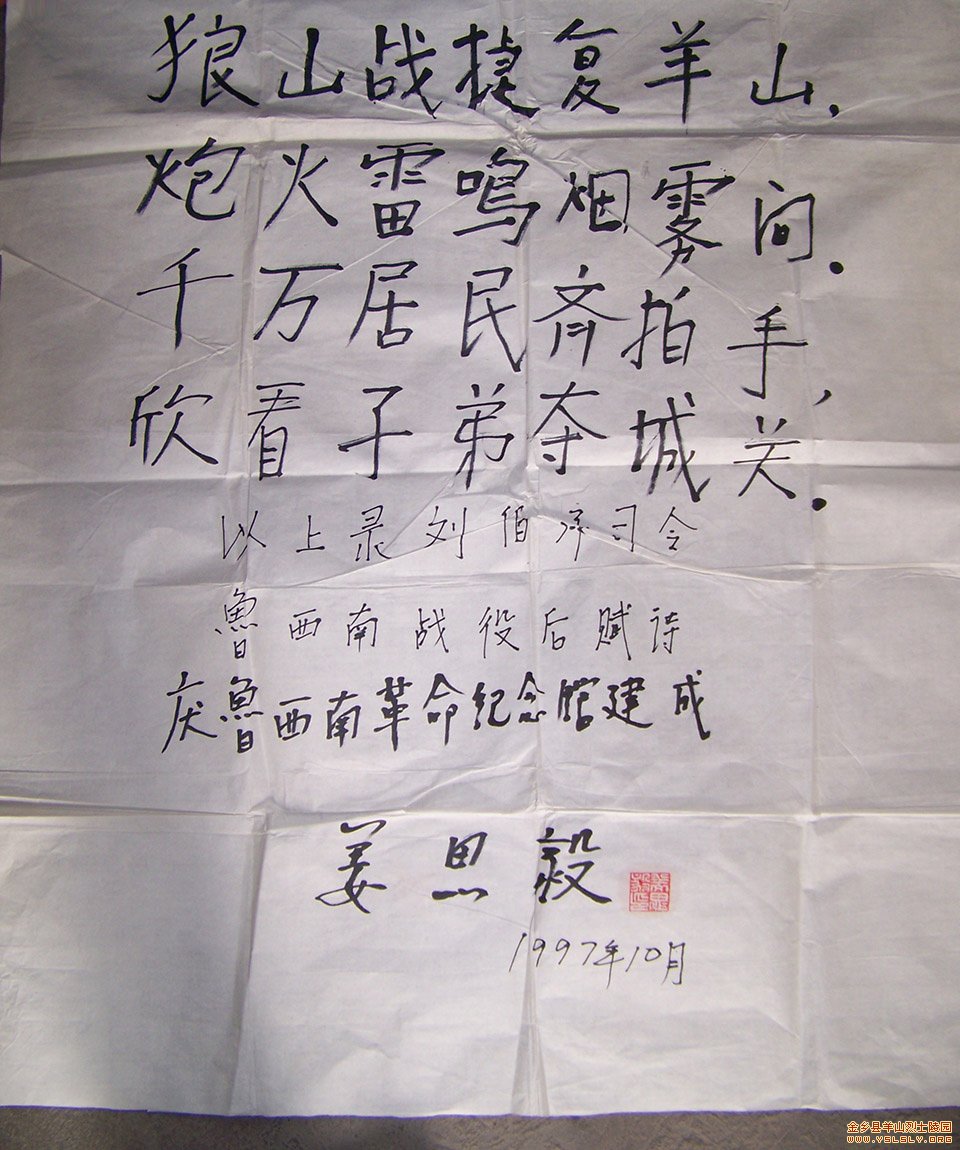 狼山战捷复羊山,
炮火雷鸣烟雾间.
千万居民齐拍手,
欣看子弟夺城关.
以上录刘伯承司令
鲁西南战役后赋诗
庆魯西南革命纪念館建成
姜思毅
1997年10月
金乡县羊山烈士陵园
WWW.YSLSLY.ORG